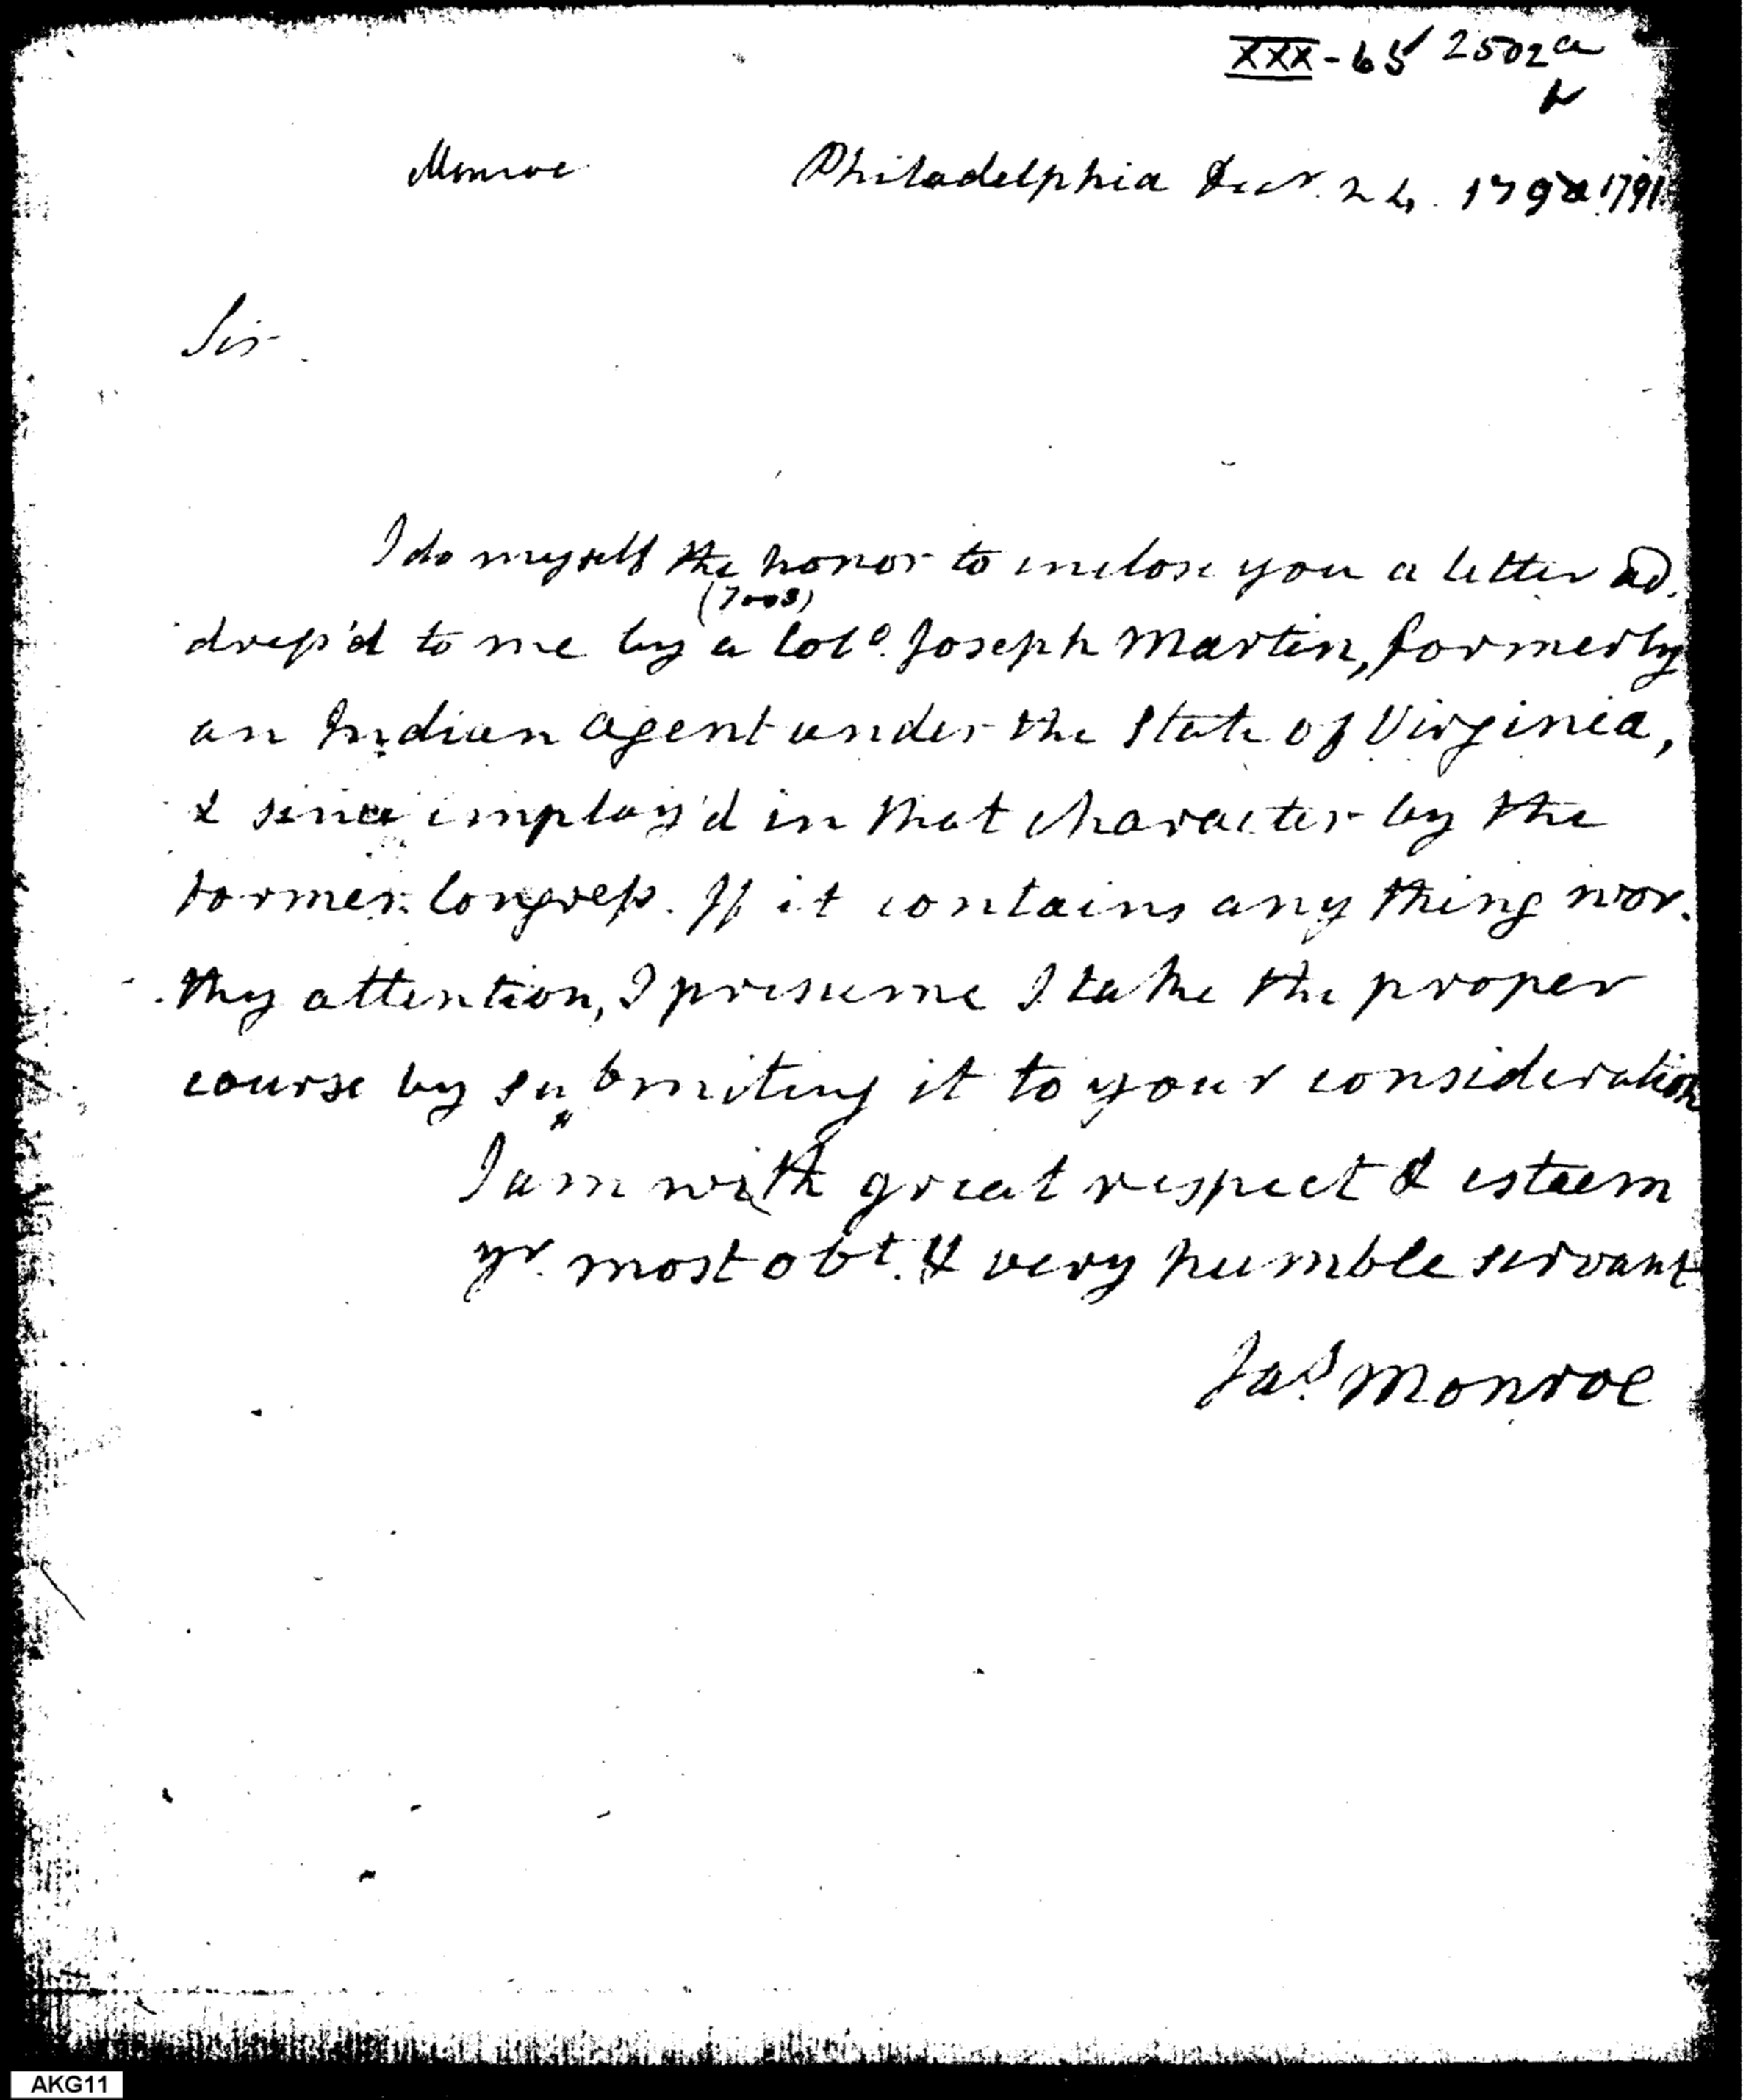 XXX-65 2502 a
Monroe Philadelphia Decr. 24. 1792 1791
Sir
I do myself the honor to enclose you a letter ad.
dress'd to me by a Colo. Joseph Martin, formerly
an Indian agent under the State of Virginia,
& since employ'd in that character by the
former Congress. If it contains any thing wor.
thy attention, I presume I take the proper
course by submiting it to your consideration
I am with great respect & esteem
yr. most obt. & very humble servant
Jas. Monroe
AKG11